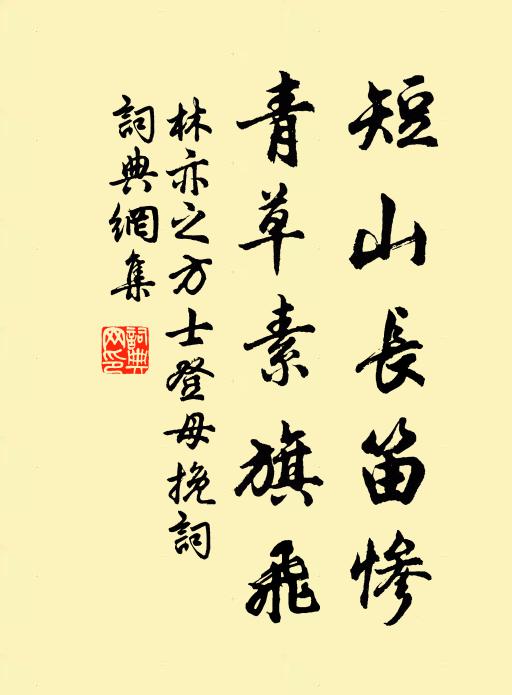 短山長笛慘
青草素旗飛
林亦之方士登母挽詞
詞典網集
詞典網印